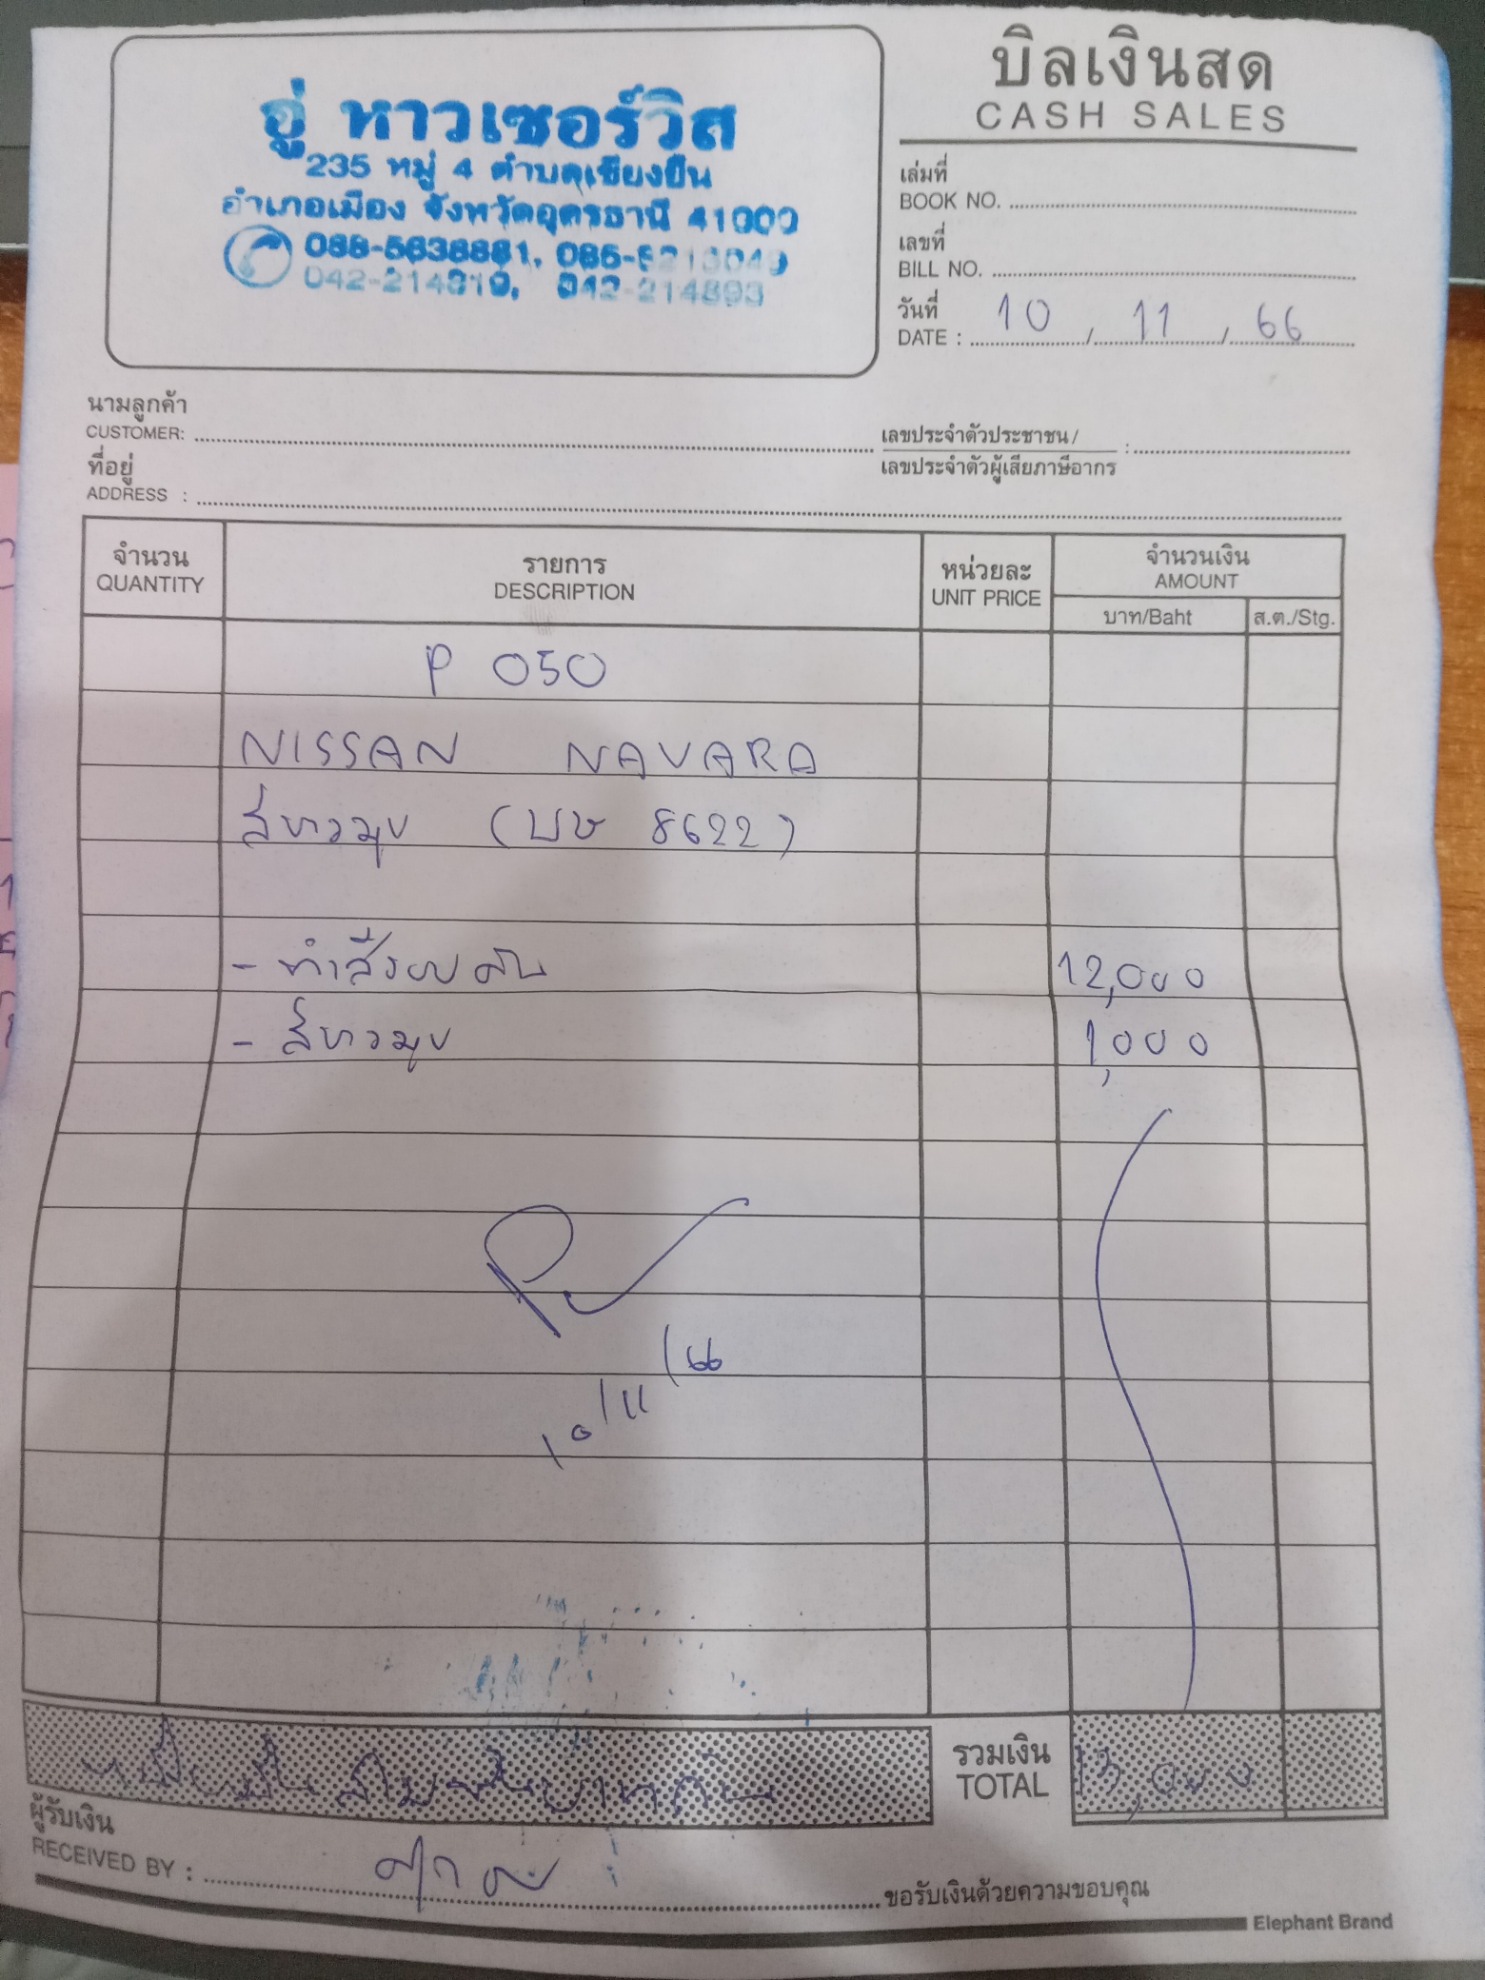 บิลเงินสด
CASH SALES
อู่ หาวเซอร์วิส
235 หมู่ 4 ตำบลเชียงยืน
อำเภอเมือง จังหวัดอุดรธานี 41000
088-5638881, 086-
042-214819, 042-214893
เล่มที่
BOOK NO.
เลขที่
BILL NO.
วันที่
DATE : 10 / 11 / 66
นามลูกค้า
CUSTOMER:
เลขประจำตัวประชาชน/
เลขประจำตัวผู้เสียภาษีอากร :
ที่อยู่
ADDRESS :
จำนวน รายการ หน่วยละ จำนวนเงิน
QUANTITY DESCRIPTION UNIT PRICE AMOUNT
บาท/Baht ส.ต./Stg.
P 050
NISSAN NAVARA
สีขาวมุข (บษ 8622)
- ทำสีรอบคัน 12,000
- สีขาวมุข 1,000
10/11/66
หนึ่งหมื่นสามพันบาทถ้วน
รวมเงิน
TOTAL 13,000
ผู้รับเงิน
RECEIVED BY :
ขอรับเงินด้วยความขอบคุณ
Elephant Brand